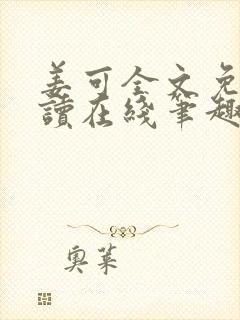 姜可全文免
讀在綫筆趣
奧萊